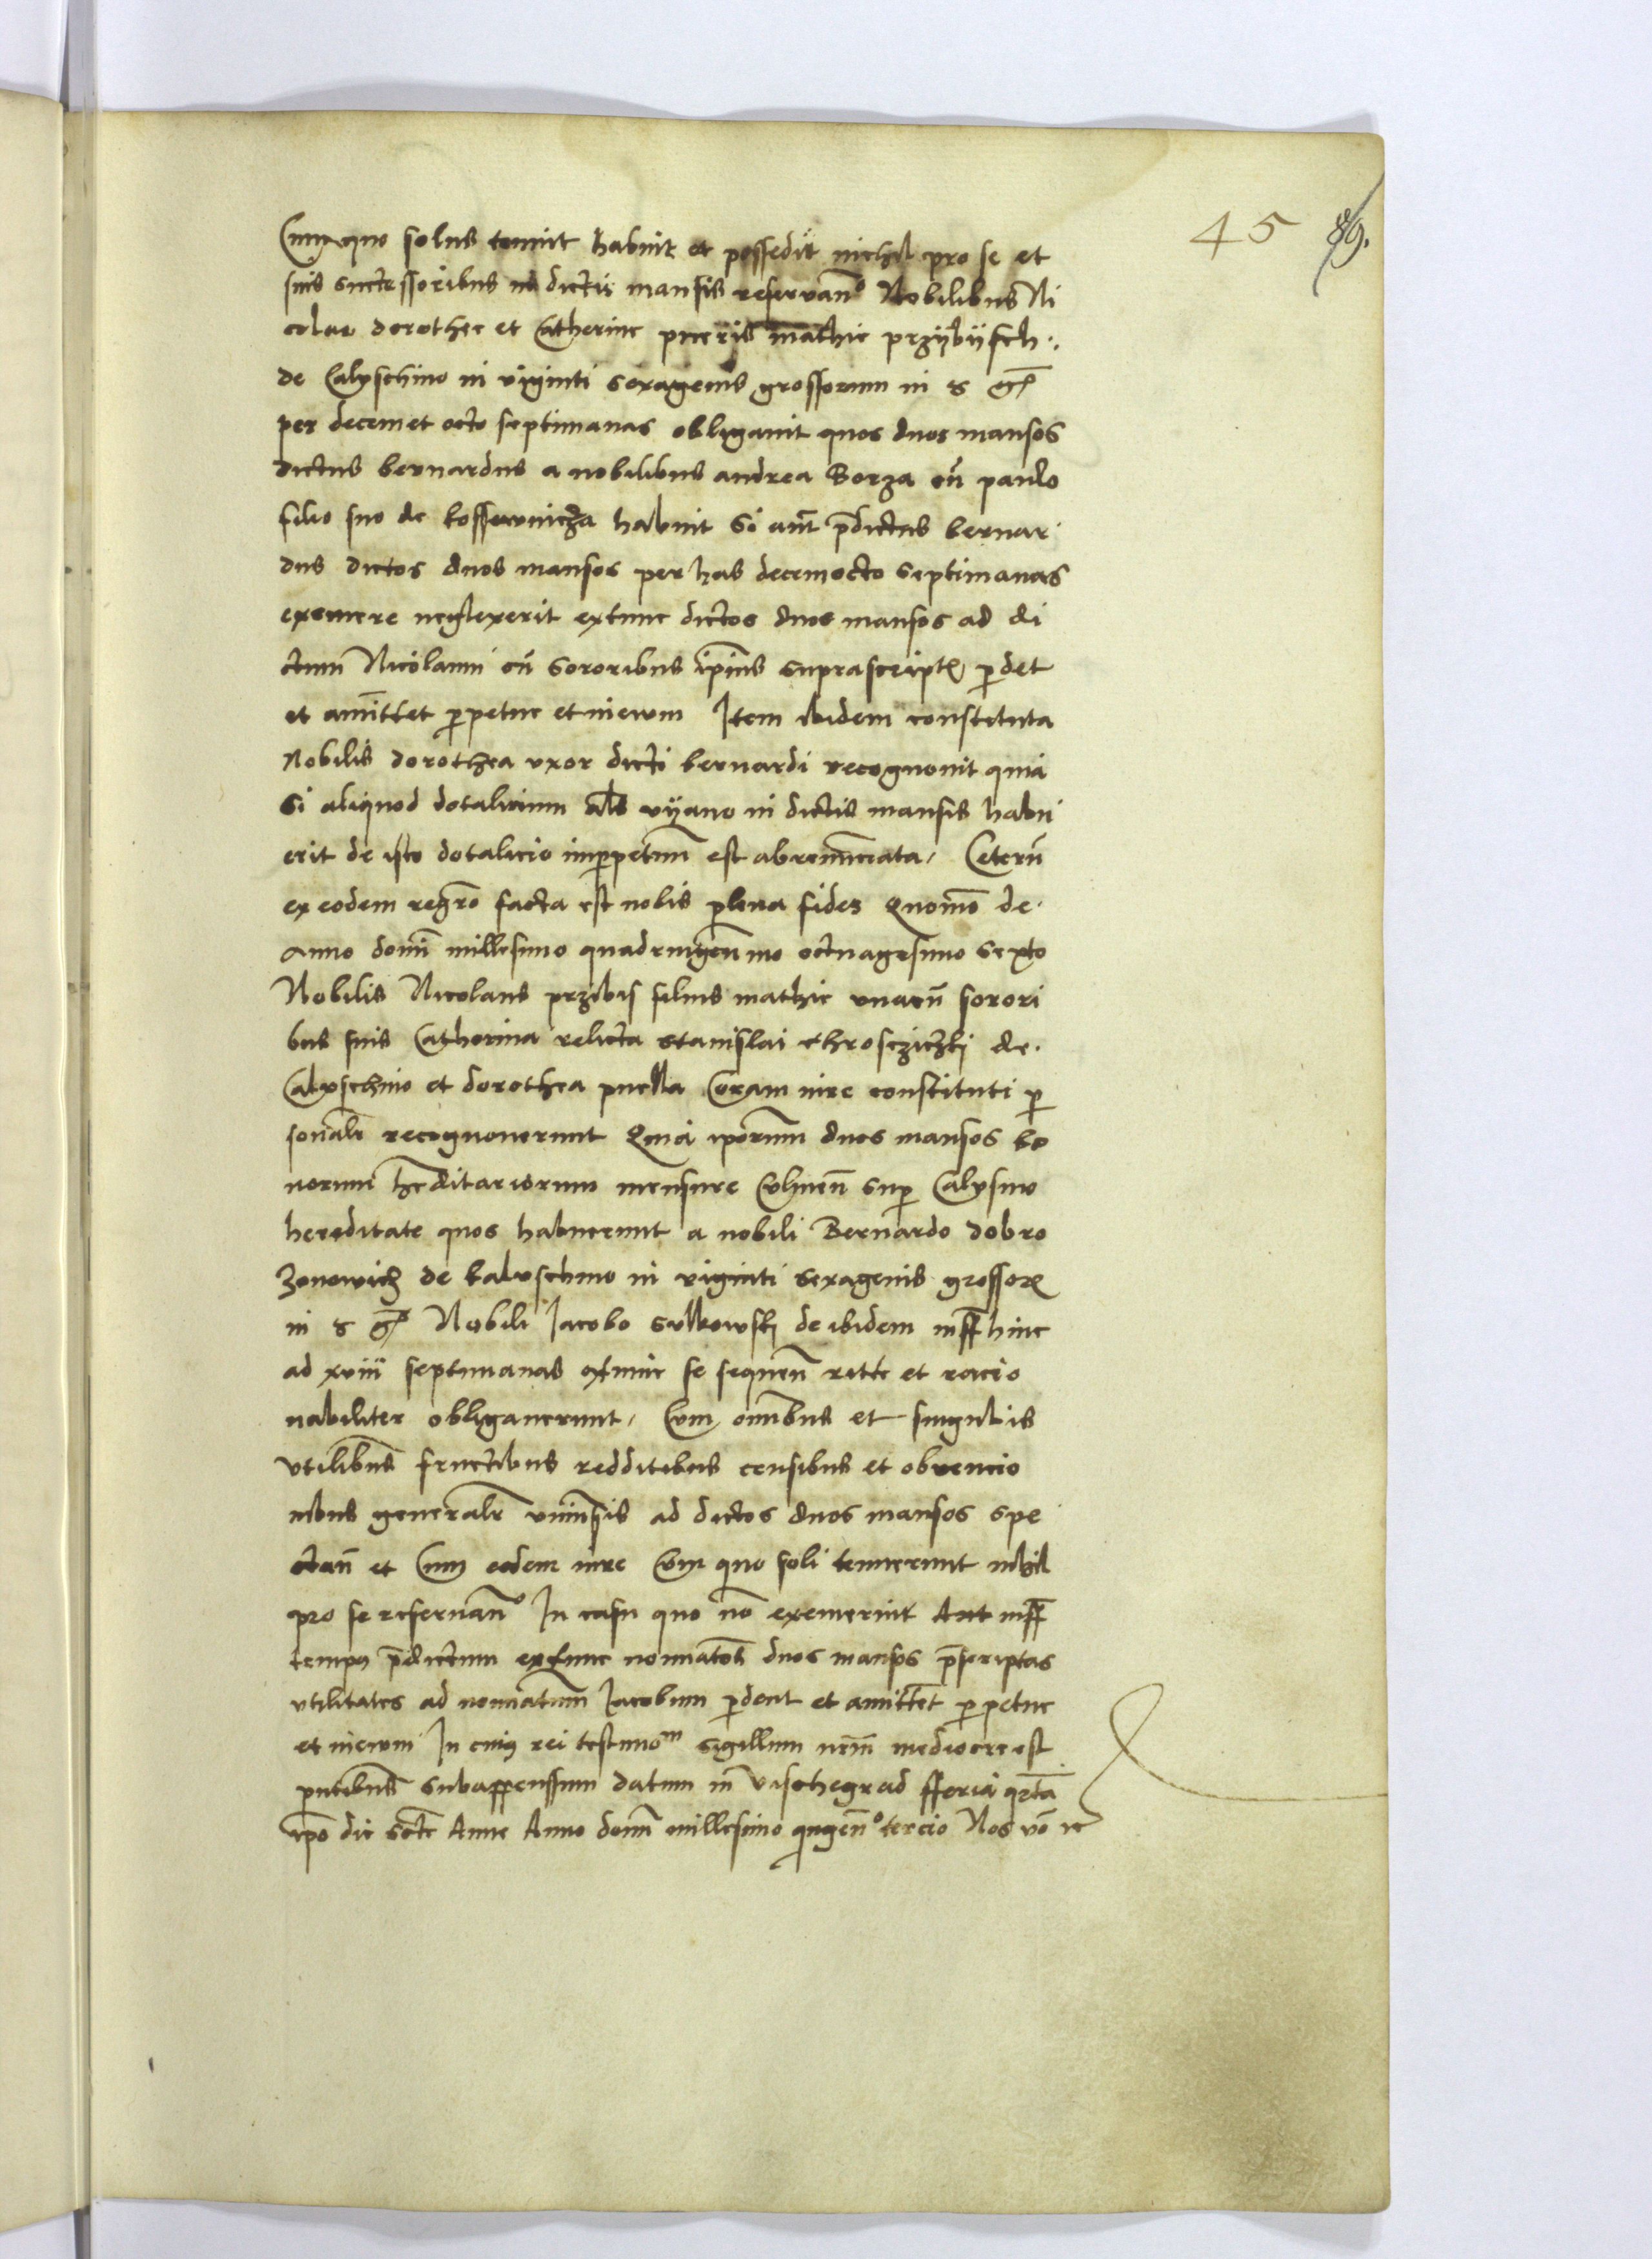 45 89.
Cum quo solus tenuit habuit et possedit nichil pro se et
suis successoribus in dictis mansis reservan⁰ Nobilibus Ni
colao dorothee et Catherine pueris mathie przybijsch.
de Calyschino in viginti sexagenis grossorum in
per decem et octo septimanas obligavit quos duos mansos
dictus bernardus a nobilibus andrea Gorza cũ paulo
filio suo de habuit Si aut̃ p̃dictus bernar
dus dictos duos mansos per has decemocto septimanas
exemere neglexerit extunc dictos duos mansos ad di
ctum Nicolaum cũ sororibus ip̃ius suprascript̃ p̱det
et amittet p̱petue et in ewm Item ibidem constituta
Nobilis dorothea uxor dicti bernardi recognovit quia
Si aliquod dotalicium al̃s vijano in dictis mansis habu
erit de isto dotalicio inp̱petuum est abrenunciata / Ceterũ
ex eodem regr̃o facta est nobis plena fides Quom̃o de.
Anno domĩ millesimo quadringen̄mo octuagesimo Sexto
Nobilis Nicolaus przibis filius mathie unacũ sorori
bus suis Catherina relicta Stanislai chroscziczki de.
Calyschino et dorothea puella Coram iure constituti p̱
sonalr̃ recognoverunt Quia ip̃orum duos mansos bo
norum hr̃editariorum mensure Culmen̄ Sup̱ Calysino
hereditate quos habuerunt a nobili Bernardo dobro
zonowicz de kaluschino in viginti sexagenis grossor̃
in Nobili Jacobo Sulkowskj de ibidem hinc
ad xviii septimanas extunc se sequen̄ ritte et racio
nabiliter obligaverunt / Cum om̃ibus et singulis
utilibus fructibus redditibus censibus et obvencio
nibus generalr̃ uniṽsis ad dictos duos mansos spe
ctan̄ et Cum eodem iure Cum quo soli tenuerunt nihil
pro se reservan⁰ In casu quo nõ exemerint Aut
tempus p̃dictum extunc nominatos duos mansos p̃scriptas
utilitates ad nominatum Jacobum p̱dent et amittent p̱petue
et in ewm In cuius rei testimoᵐ Sigillum nr̃m mediocre est
p̃ntibus Subappenssum datum in Vischegrad fferia qr̃ta
ip̃o die Sctẽ Anne Anno domĩ millesimo qngen̄⁰ tercio Nos vo